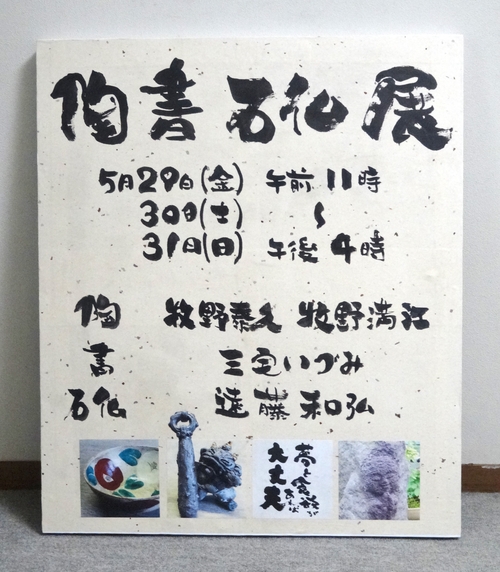 陶書石仏展
5月29日(金) 午前11時
30日(土) 〜
31日(日) 午後4時
陶 牧野泰久 牧野満江
書 三宅いづみ
石仏 遠藤和弘
夢と食欲が
あれば
大丈夫